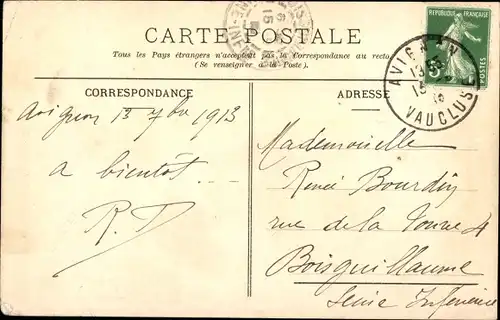 CARTE POSTALE
Tous les Pays étrangers n'acceptent pas la Correspondance au recto
(Se renseigner à la Poste).
RÉPUBLIQUE FRANÇAISE
POSTES
AVIGNON
VAUCLUSE
CORRESPONDANCE
Avignon 13 7bre 1913
a bientôt.
R. D
ADRESSE
Mademoiselle
Renée Bourdin
rue de la 4
Boisguillaume
Seine Inferieure